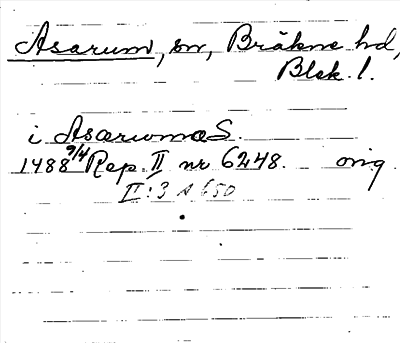 Asarum, sn, Bräkne hd,
Blek. l.
i Asarumæ S.
1488 9/4 Rep. II nr 6248. orig.
II:3 s 650